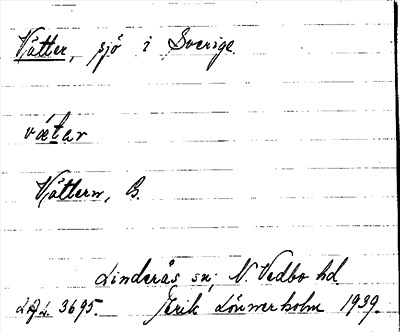 Vätter, sjö i Sverige.
vætar
Vättern, B.
Linderås sn; N. Vedbo hd.
LAL 3695. Erik Lönnerholm 1939.